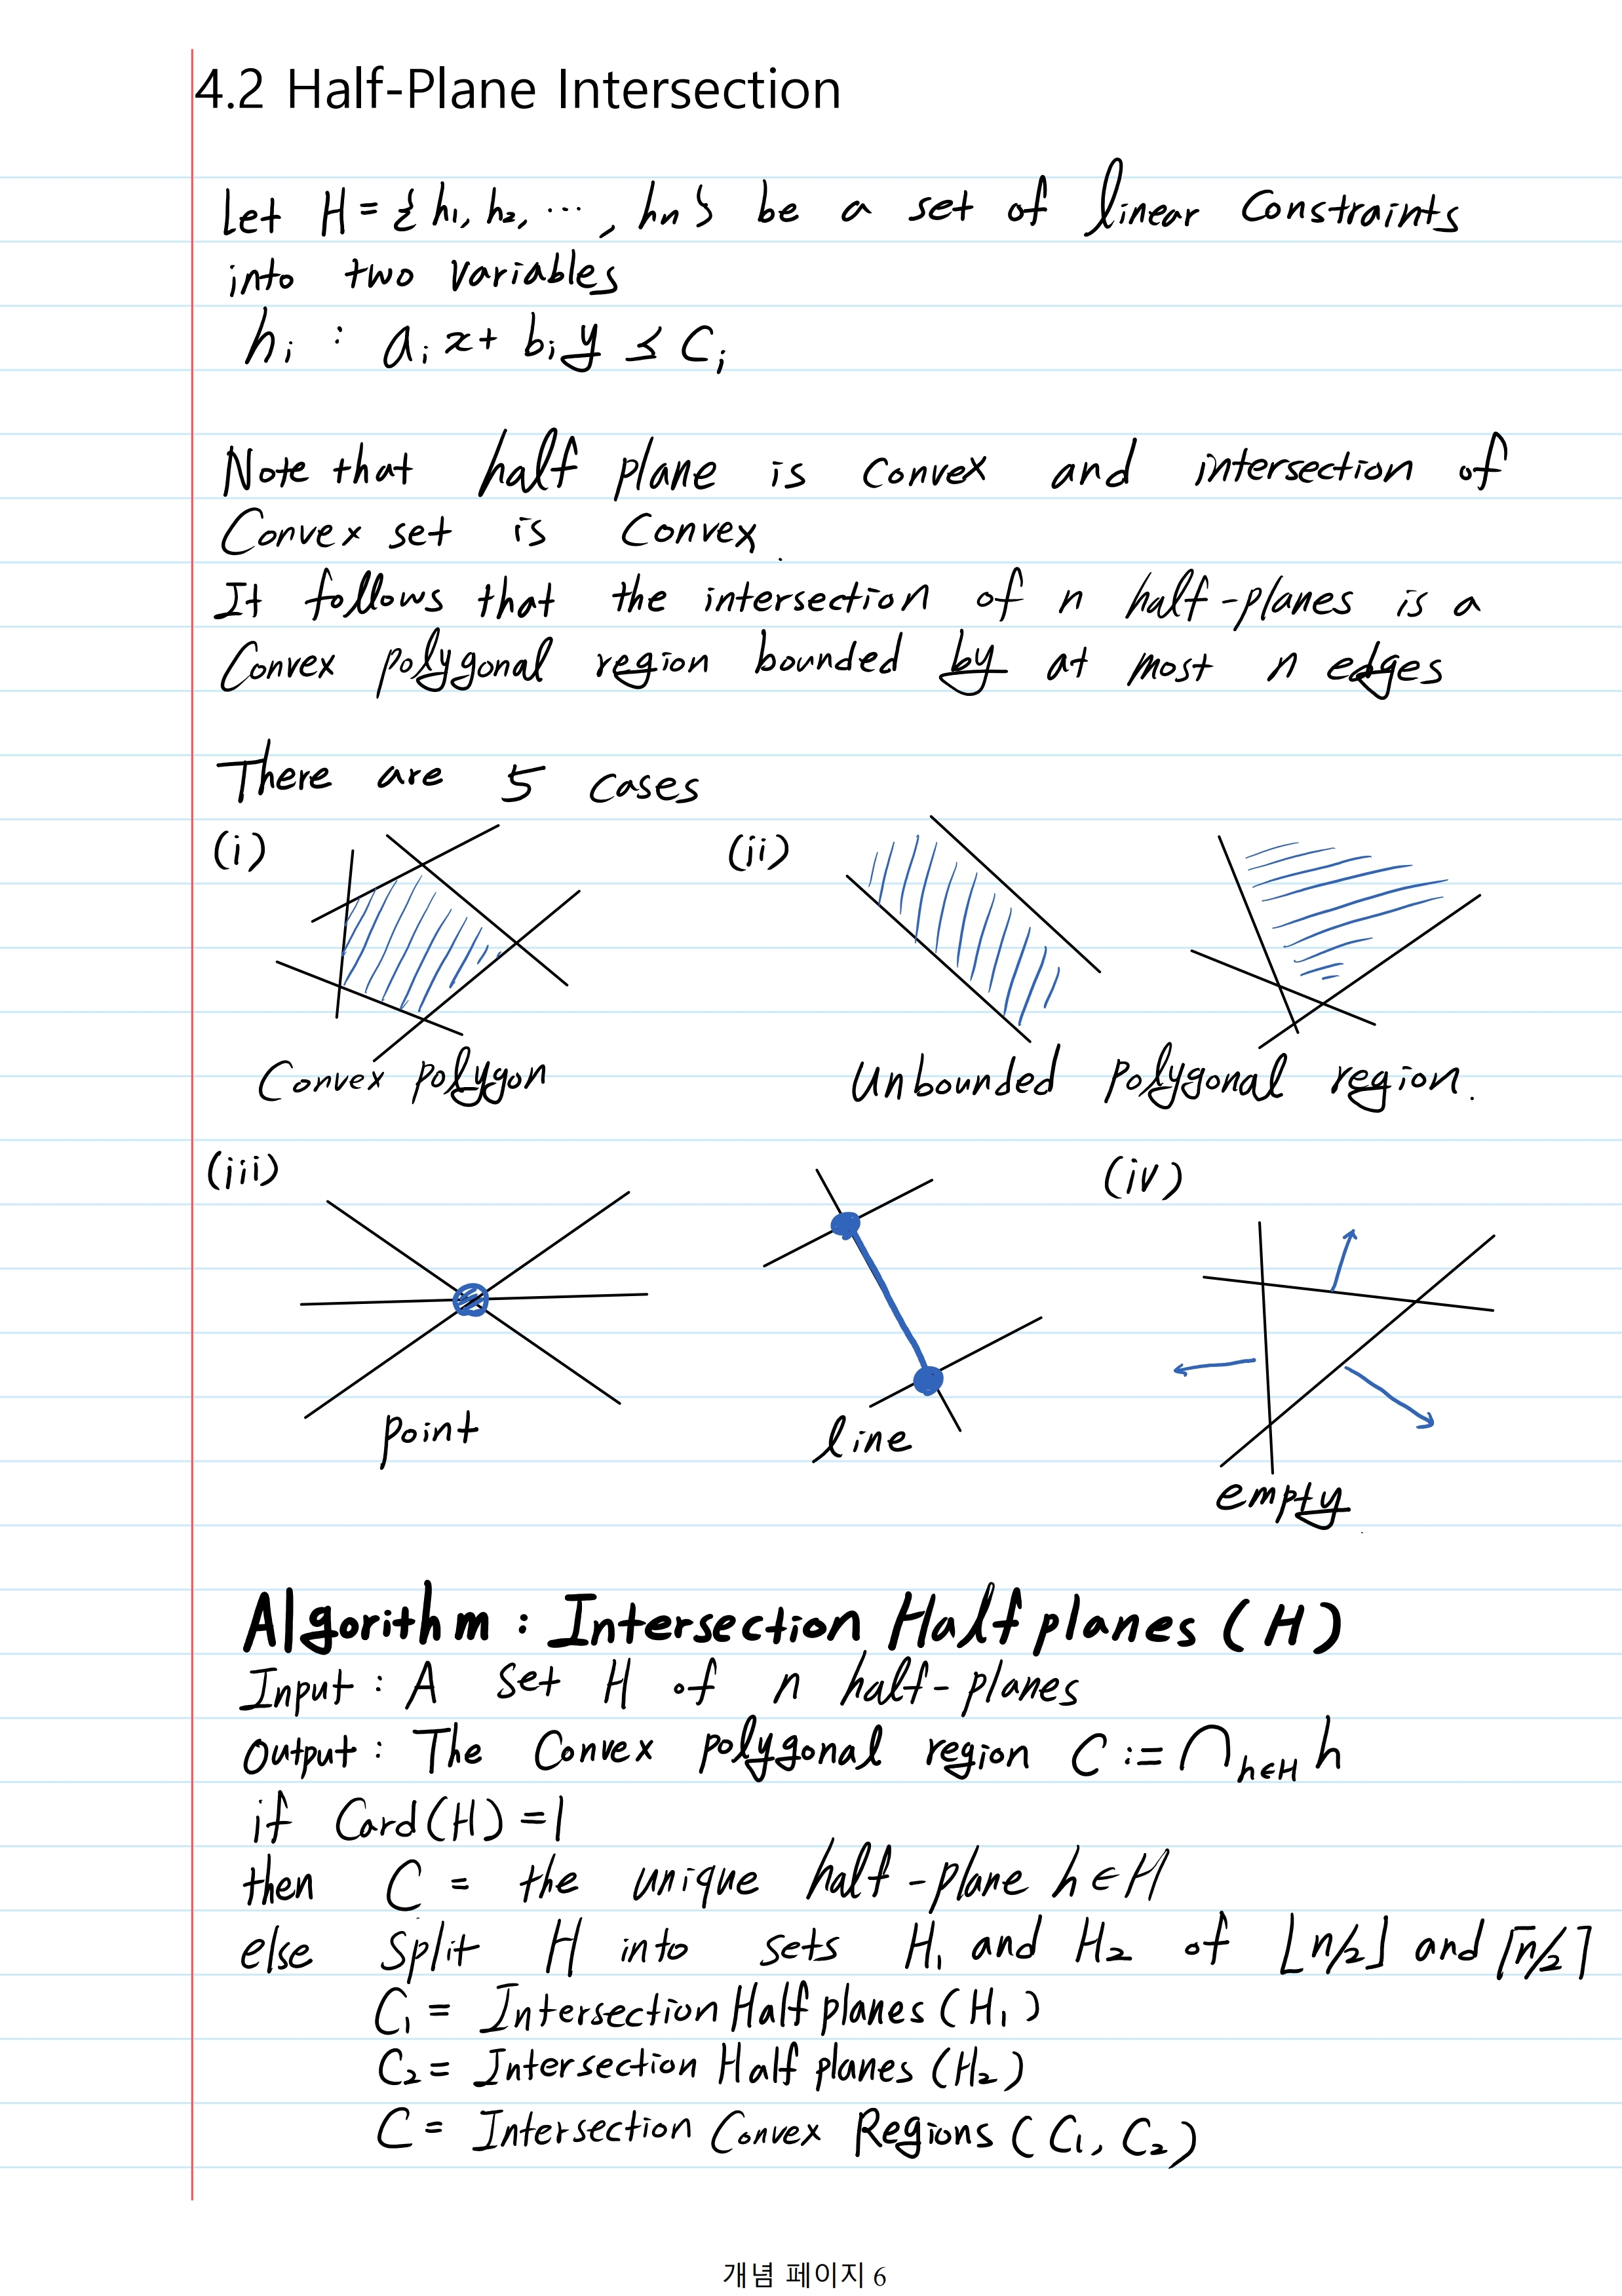 4.2 Half-Plane Intersection
Let H = { h₁, h₂, ⋯, hₙ } be a set of linear Constraints
into two variables
hᵢ : aᵢ x + bᵢ y ≤ Cᵢ
Note that half plane is convex and intersection of
Convex set is Convex.
It follows that the intersection of n half-planes is a
Convex polygonal region bounded by at most n edges
There are 5 cases
(i) (ii)
Convex polygon Unbounded polygonal region.
(iii) (iv)
point line empty.
Algorithm : Intersection Half planes (H)
Input : A set H of n half-planes
Output : The Convex polygonal region C := ⋂ₕ∈H h
if Card(H) = 1
then C = the unique half-plane h ∈ H
else Split H into sets H₁ and H₂ of ⌊n/2⌋ and ⌈n/2⌉
C₁ = Intersection Half planes (H₁)
C₂ = Intersection Half planes (H₂)
C = Intersection Convex Regions (C₁, C₂)
개념 페이지 6